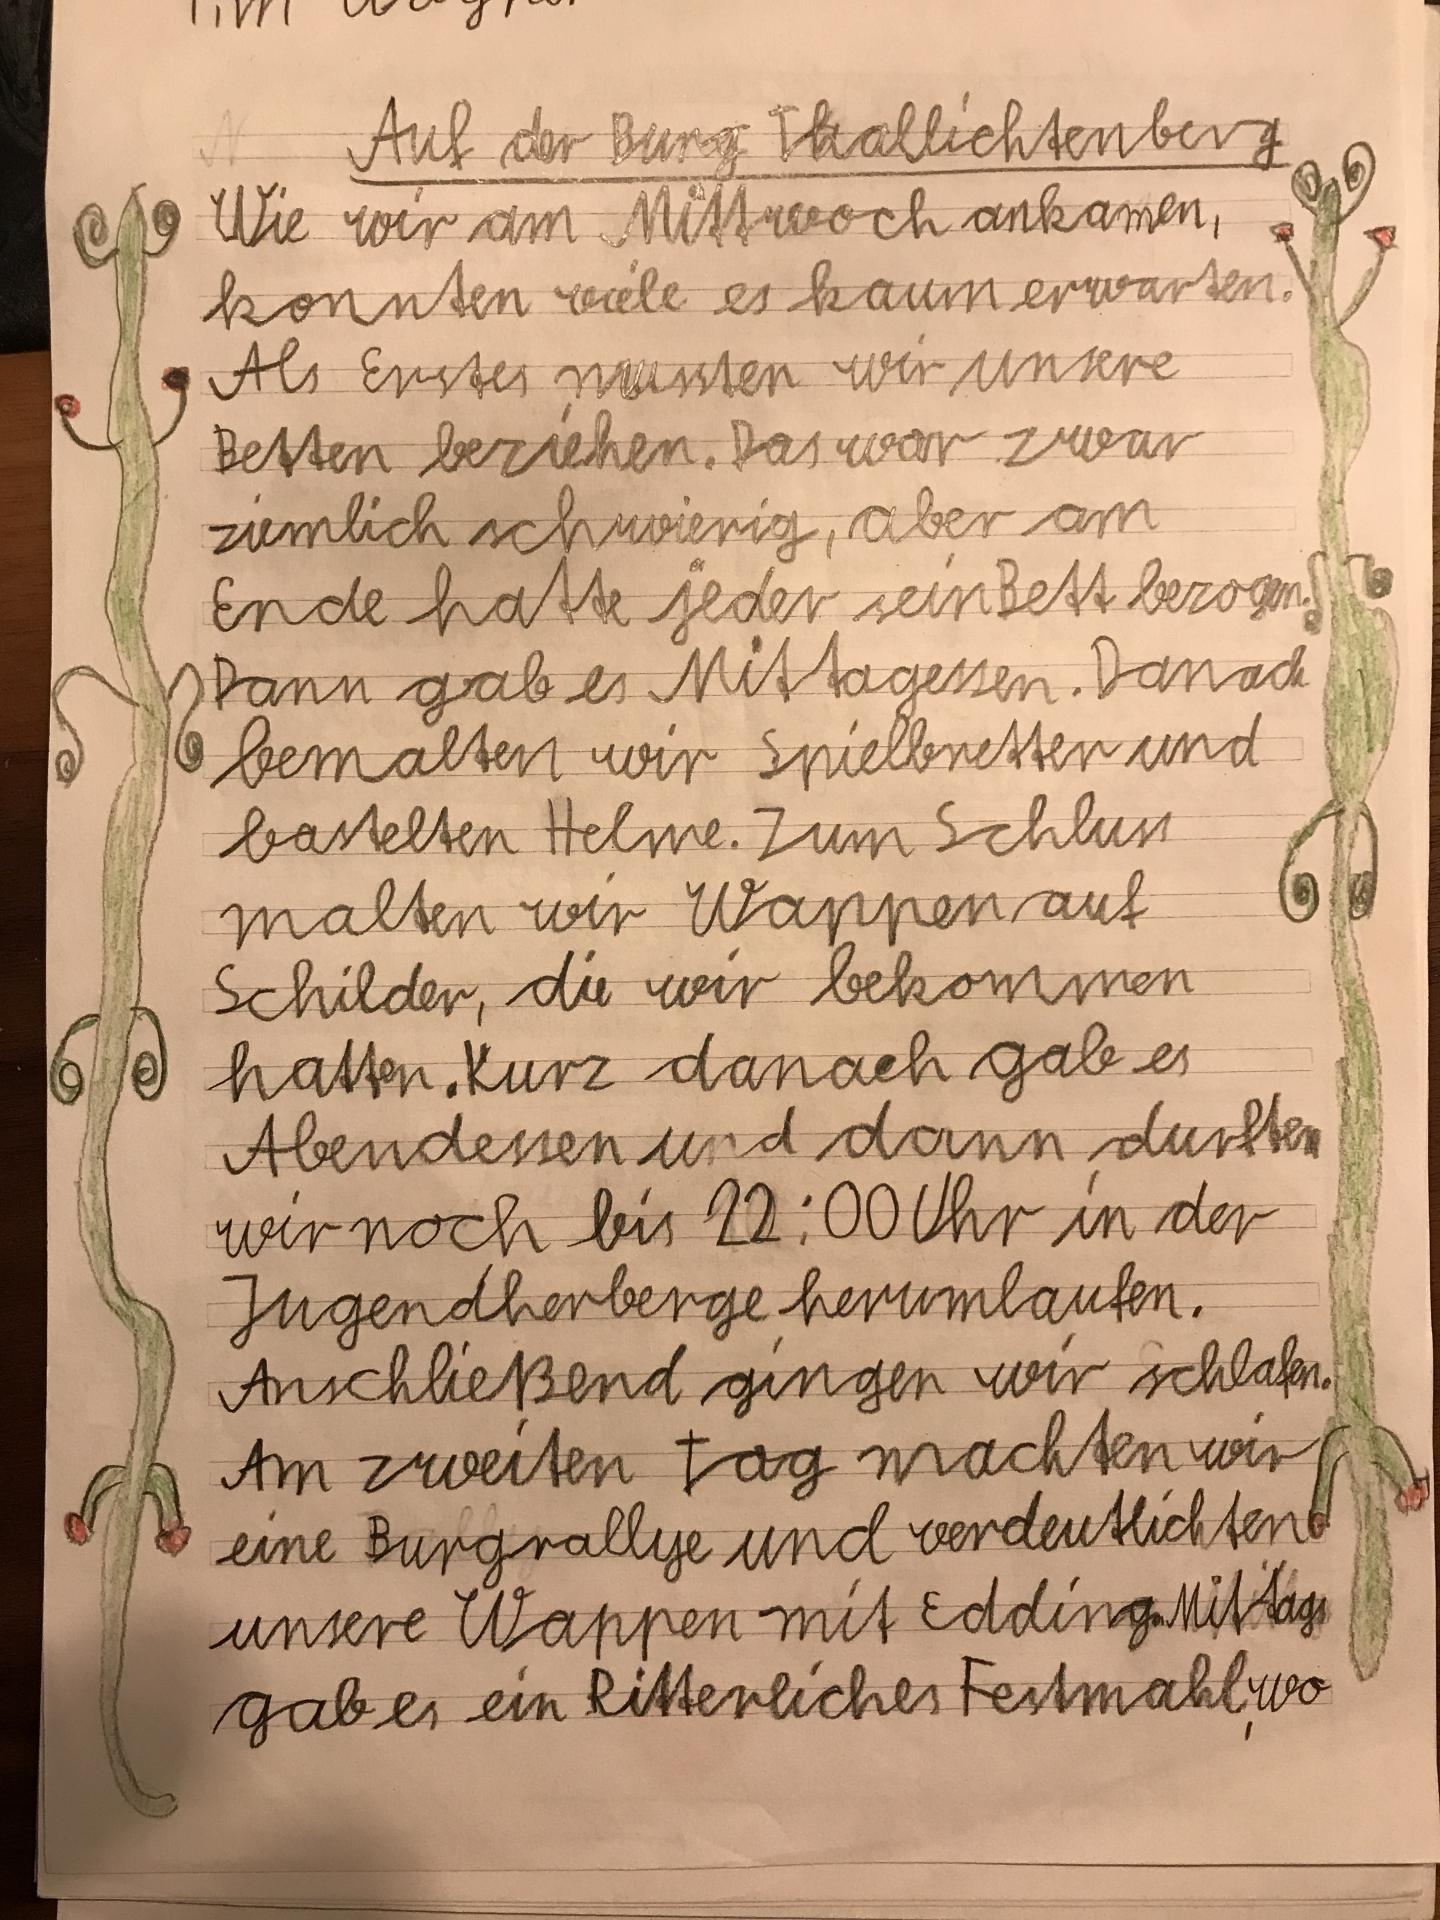 Tim
Auf der Burg Thallichtenberg
Wie wir am Mittwoch ankamen,
konnten viele es kaum erwarten.
Als Erstes mussten wir unsere
Betten beziehen. Das war zwar
ziemlich schwierig, aber am
Ende hatte jeder sein Bett bezogen.
Dann gab es Mittagessen. Danach
bemalten wir Spielbretter und
bastelten Helme. Zum Schluss
malten wir Wappen auf
Schilder, die wir bekommen
hatten. Kurz danach gab es
Abendessen und dann durften
wir noch bis 22:00 Uhr in der
Jugendherberge herumlaufen.
Anschließend gingen wir schlafen.
Am zweiten Tag machten wir
eine Burgrallye und verdeutlichten
unsere Wappen mit Edding. Mittags
gab es ein Ritterliches Festmahl, wo